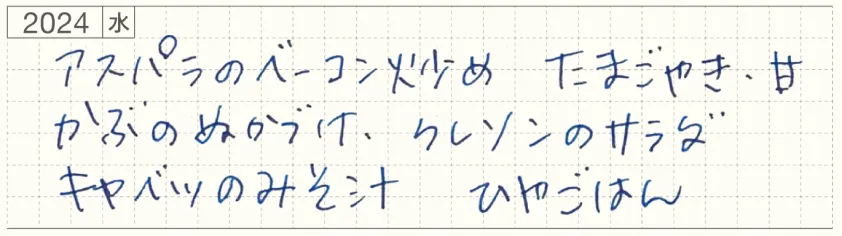 2024 水
アスパラのベーコン炒め たまごやき、甘
かぶのぬかづけ、クレソンのサラダ
キャベツのみそ汁 ひやごはん